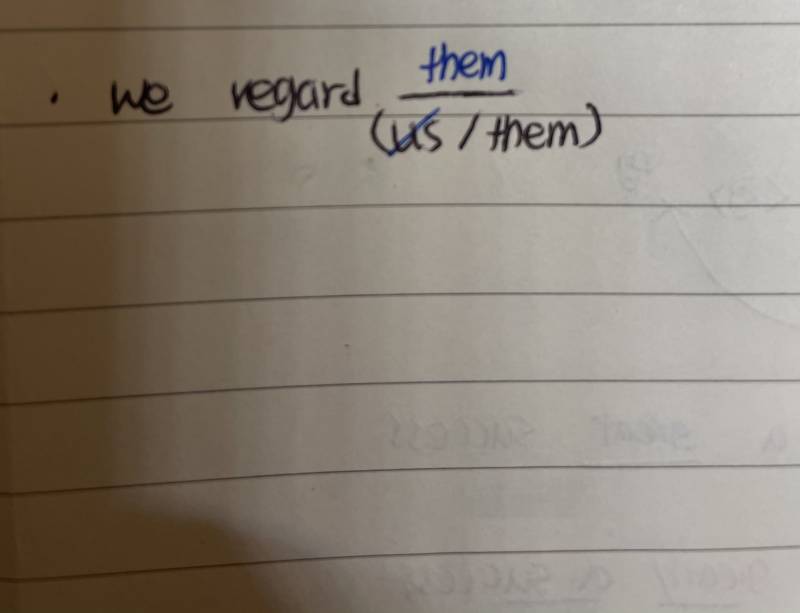 · we regard them
(us / them)